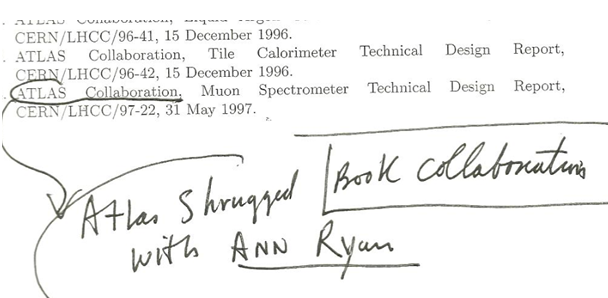 . ATLAS Collaboration, Liquid Argon
CERN/LHCC/96-41, 15 December 1996.
. ATLAS Collaboration, Tile Calorimeter Technical Design Report,
CERN/LHCC/96-42, 15 December 1996.
ATLAS Collaboration, Muon Spectrometer Technical Design Report,
CERN/LHCC/97-22, 31 May 1997.
Atlas Shrugged Book Collaborations
with ANN Ryan